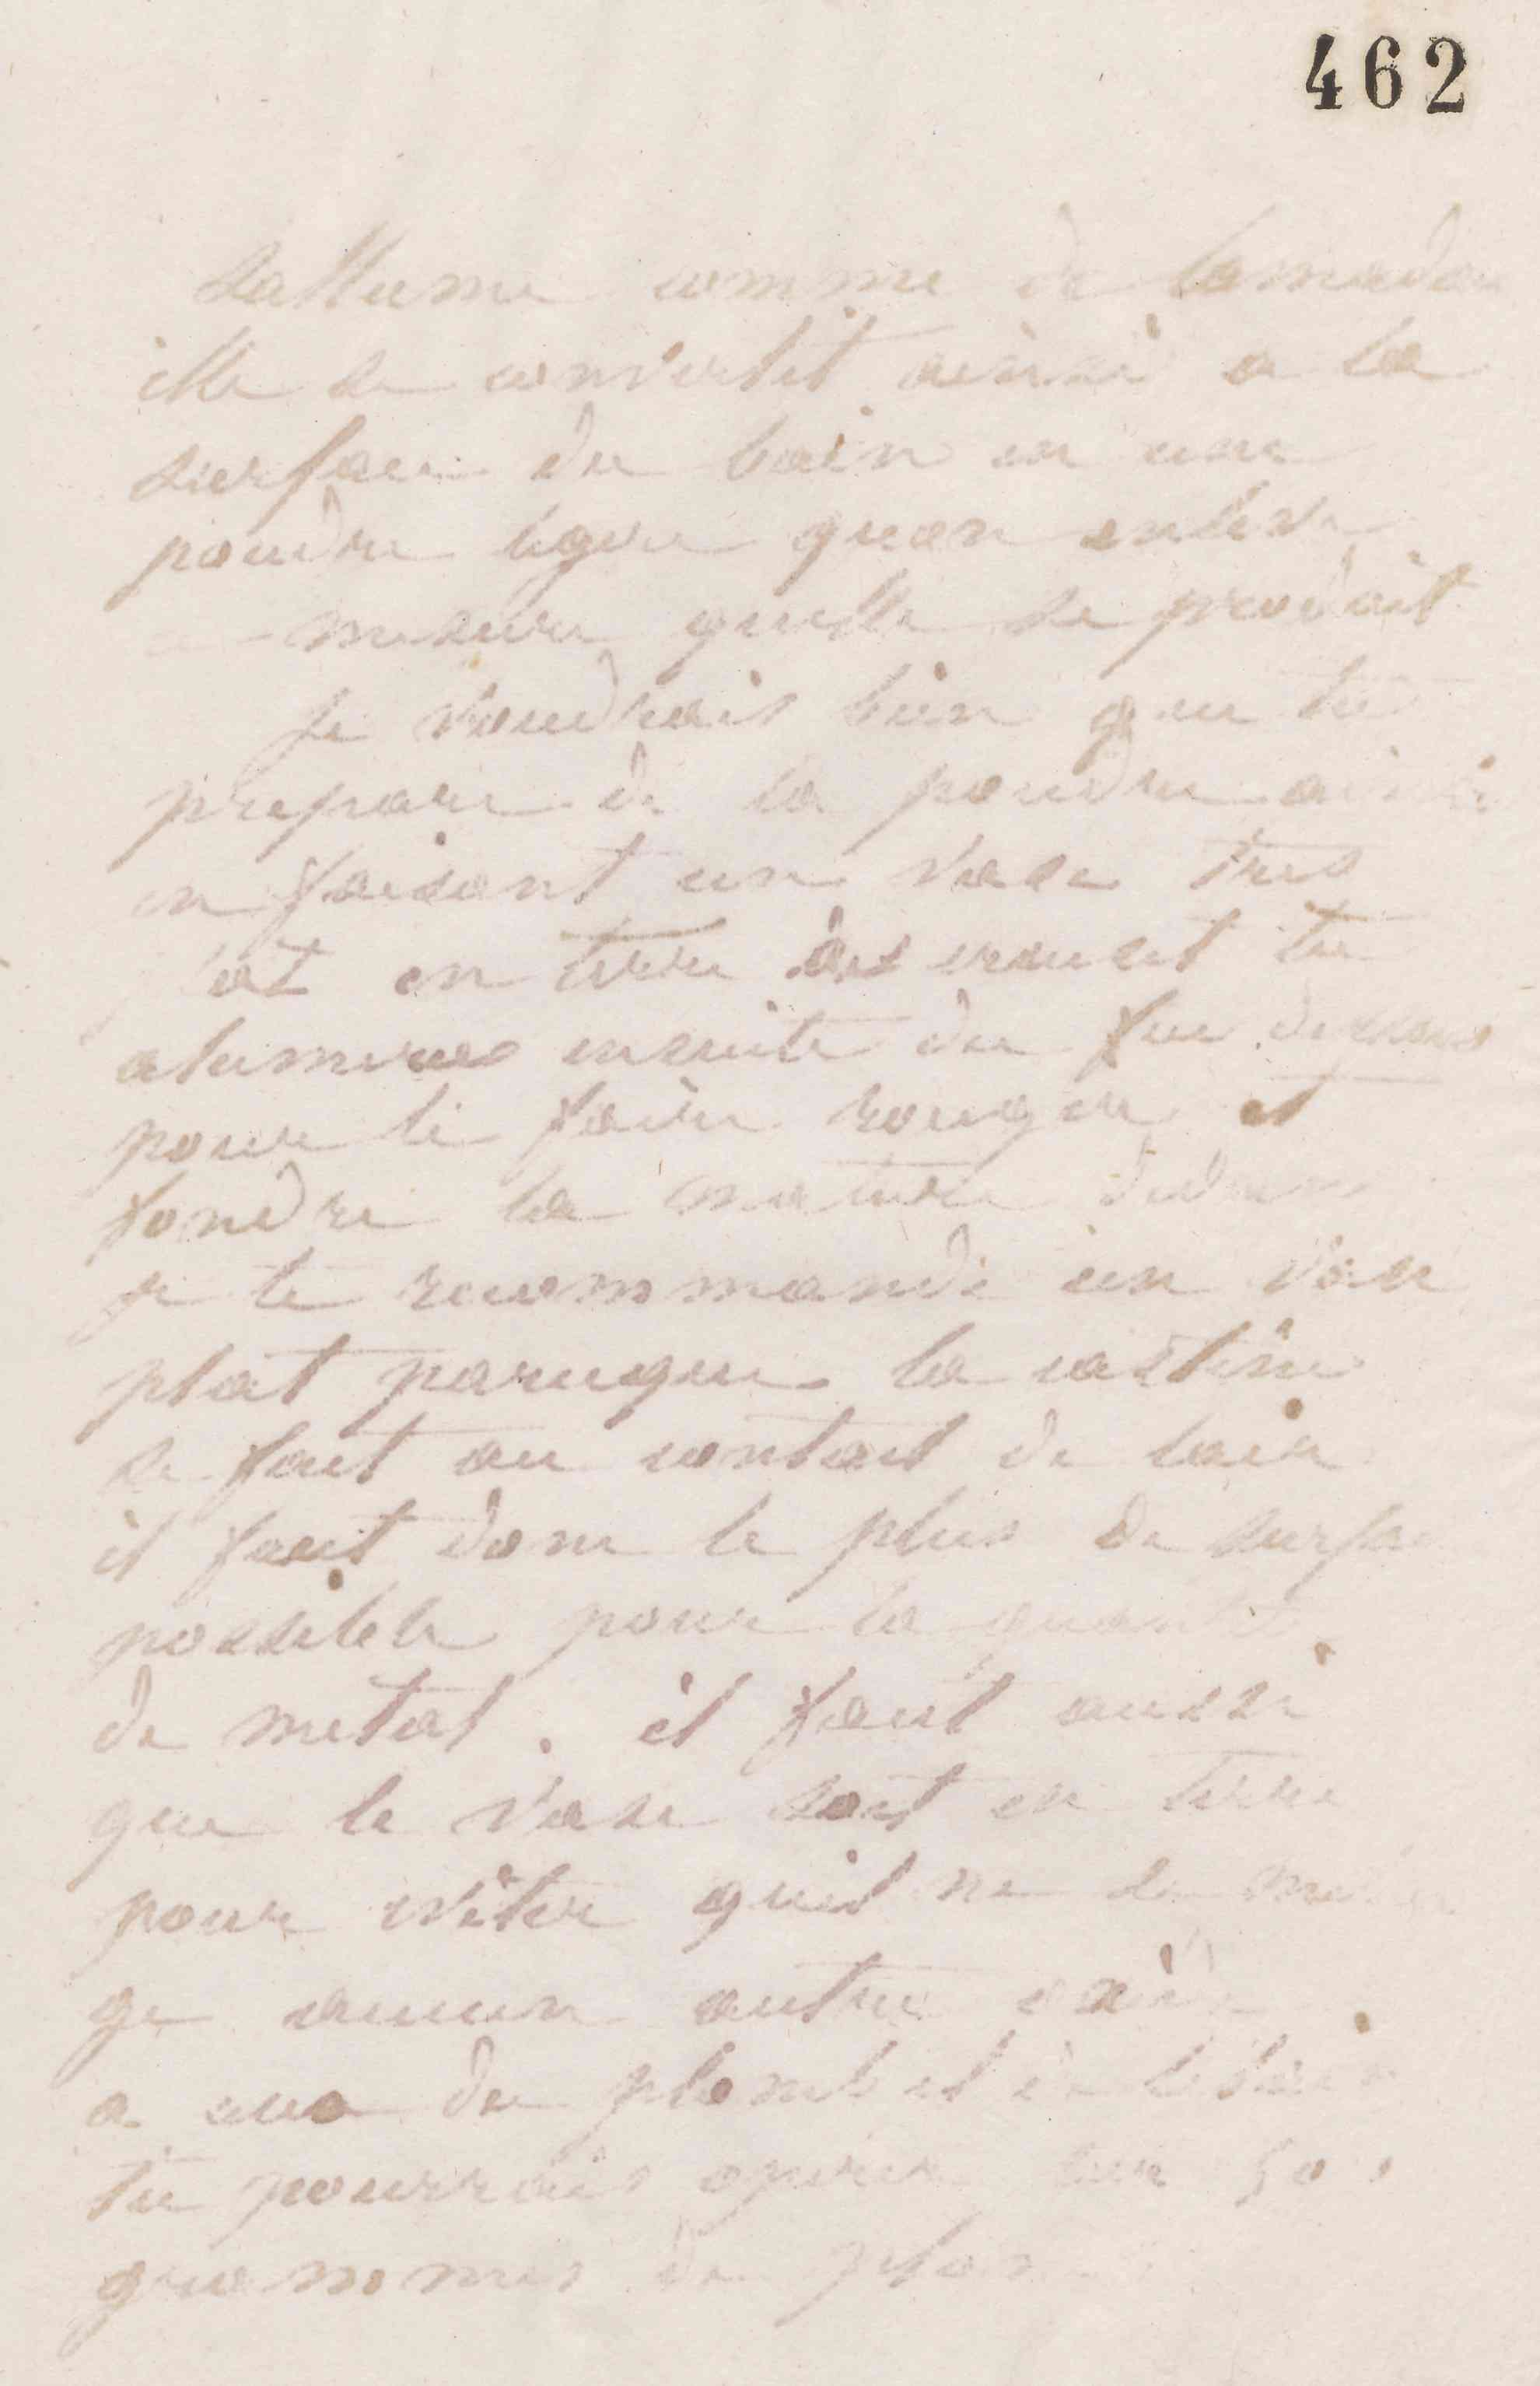 462
sallume comme de lamadou
elle se convertit ainsi a la
surface du bain en une
poudre legere quon enleve
a mesure quelle se produit
Je voudrais bien que tu
prepare de la poudre ainsi
en faisant un vase tres
plat en terre tu
alumeras ensuite du feu dessous
pour le faire rougir et
fondre la matiere dedans
je te recommande un vase
plat parceque la
se fait au contact de lair
il faut donc le plus de surface
possible pour la quantite
de metal. il faut aussi
que le vase soit en terre
pour eviter quil ne se melan
ge aucun autre oxide
a ceux du plomb et de letain
tu pourrais operer sur 50
grammes de plomb